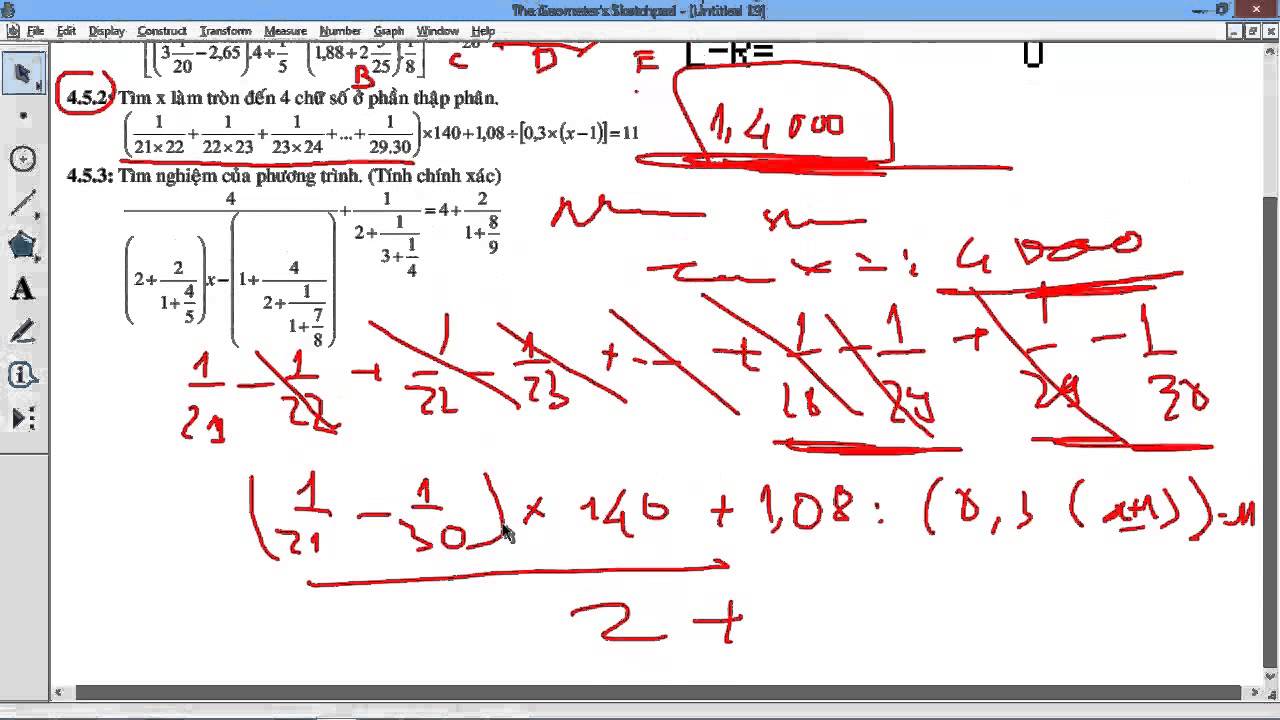 The Geometer's Sketchpad - [Untitled 13]
File Edit Display Construct Transform Measure Number Graph Window Help
[(3 1/20 − 2,65).4 + 1/5 (1,88 + 2 /25).1/8]
B C D E
L-R= 0
4.5.2: Tìm x làm tròn đến 4 chữ số ở phần thập phân.
(1/21×22 + 1/22×23 + 1/23×24 + ... + 1/29.30)×140+1,08÷[0,3×(x−1)]=11
1,4 000
4.5.3: Tìm nghiệm của phương trình. (Tính chính xác)
4/((2+2/(1+4/5))x−(1+4/(2+1/(1+7/8)))) + 1/(2+1/(3+1/4)) = 4+2/(1+8/9)
x = 4 000
1/21 − 1/22 + 1/22 − 1/23 + -- + 1/28 − 1/29 + 1/29 − 1/30
(1/21 − 1/30) × 140 + 1,08 : (0,3 (x+1)) = 11
2 +